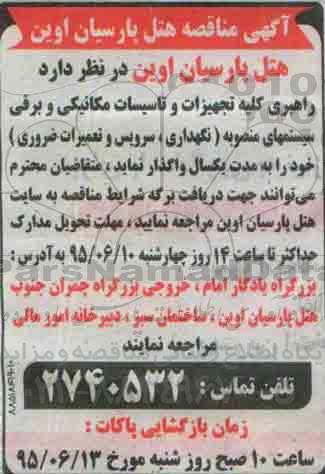 آگهی مناقصه هتل پارسیان اوین
هتل پارسیان اوین در نظر دارد
راهبری کلیه تجهیزات و تاسیسات مکانیکی و برقی
سیستمهای منصوبه ( نگهداری ، سرویس و تعمیرات ضروری )
خود را به مدت یکسال واگذار نماید ، متقاضیان محترم
می‌توانند جهت دریافت برگه شرایط مناقصه به سایت
هتل پارسیان اوین مراجعه نمایید ، مهلت تحویل مدارک
حداکثر تا ساعت ۱۴ روز چهارشنبه ۹۵/۰۶/۱۰ به آدرس :
بزرگراه یادگار امام ، خروجی بزرگراه چمران جنوب
هتل پارسیان اوین ، ساختمان سبز ، دبیرخانه امور مالی
مراجعه نمایند
تلفن تماس : ۲۷۴۰۵۳۲
زمان بازگشایی پاکات :
ساعت ۱۰ صبح روز شنبه مورخ ۹۵/۰۶/۱۳
ParsNamadData